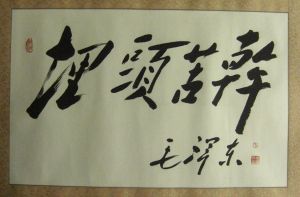 埋頭苦幹
毛泽东